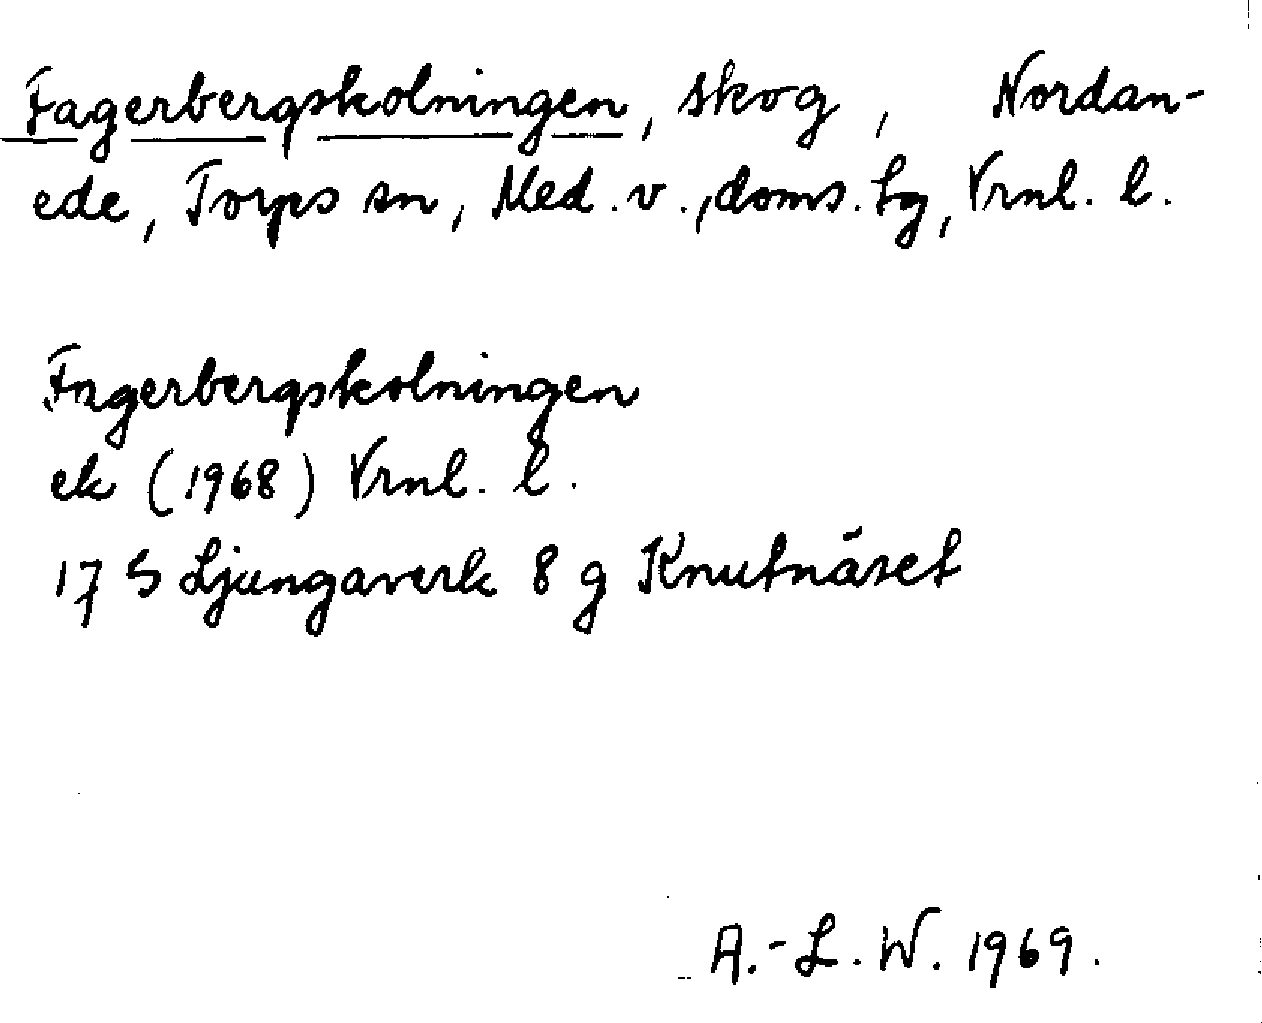 Fagerbergskolningen, skog, Nordan-
ede, Torps sn, Med. v., doms. hg, Vrnl. l.
Fagerbergskolningen
ek (1968) Vrnl. l.
17 G Ljungaverk 8 g Knutnäset
A.-L. W. 1969.